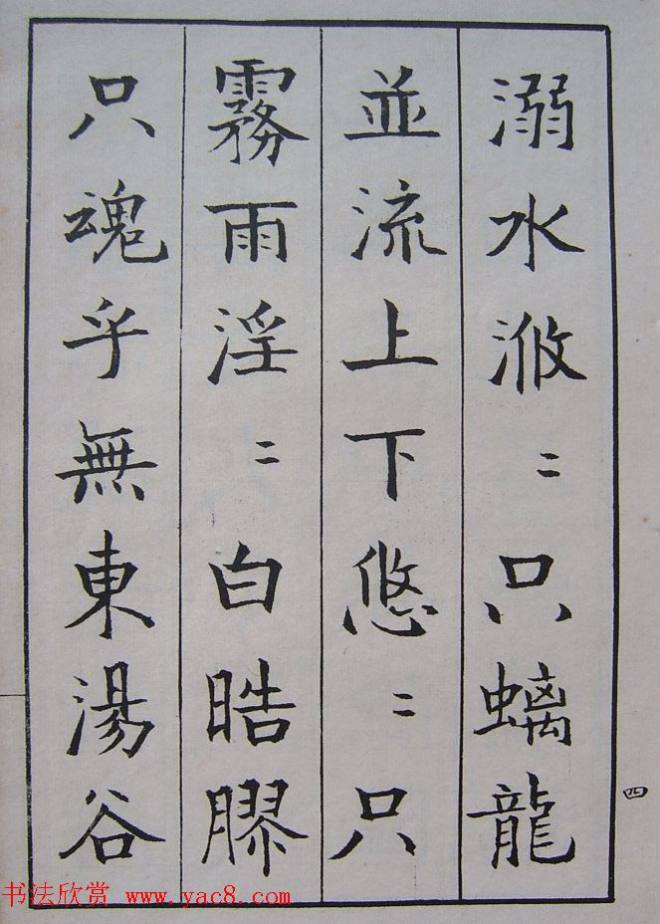 溺水浟〻只螭龍
並流上下悠〻只
霧雨淫〻白晧膠
只魂乎無東湯谷
四
书法欣赏 www.yac8.com